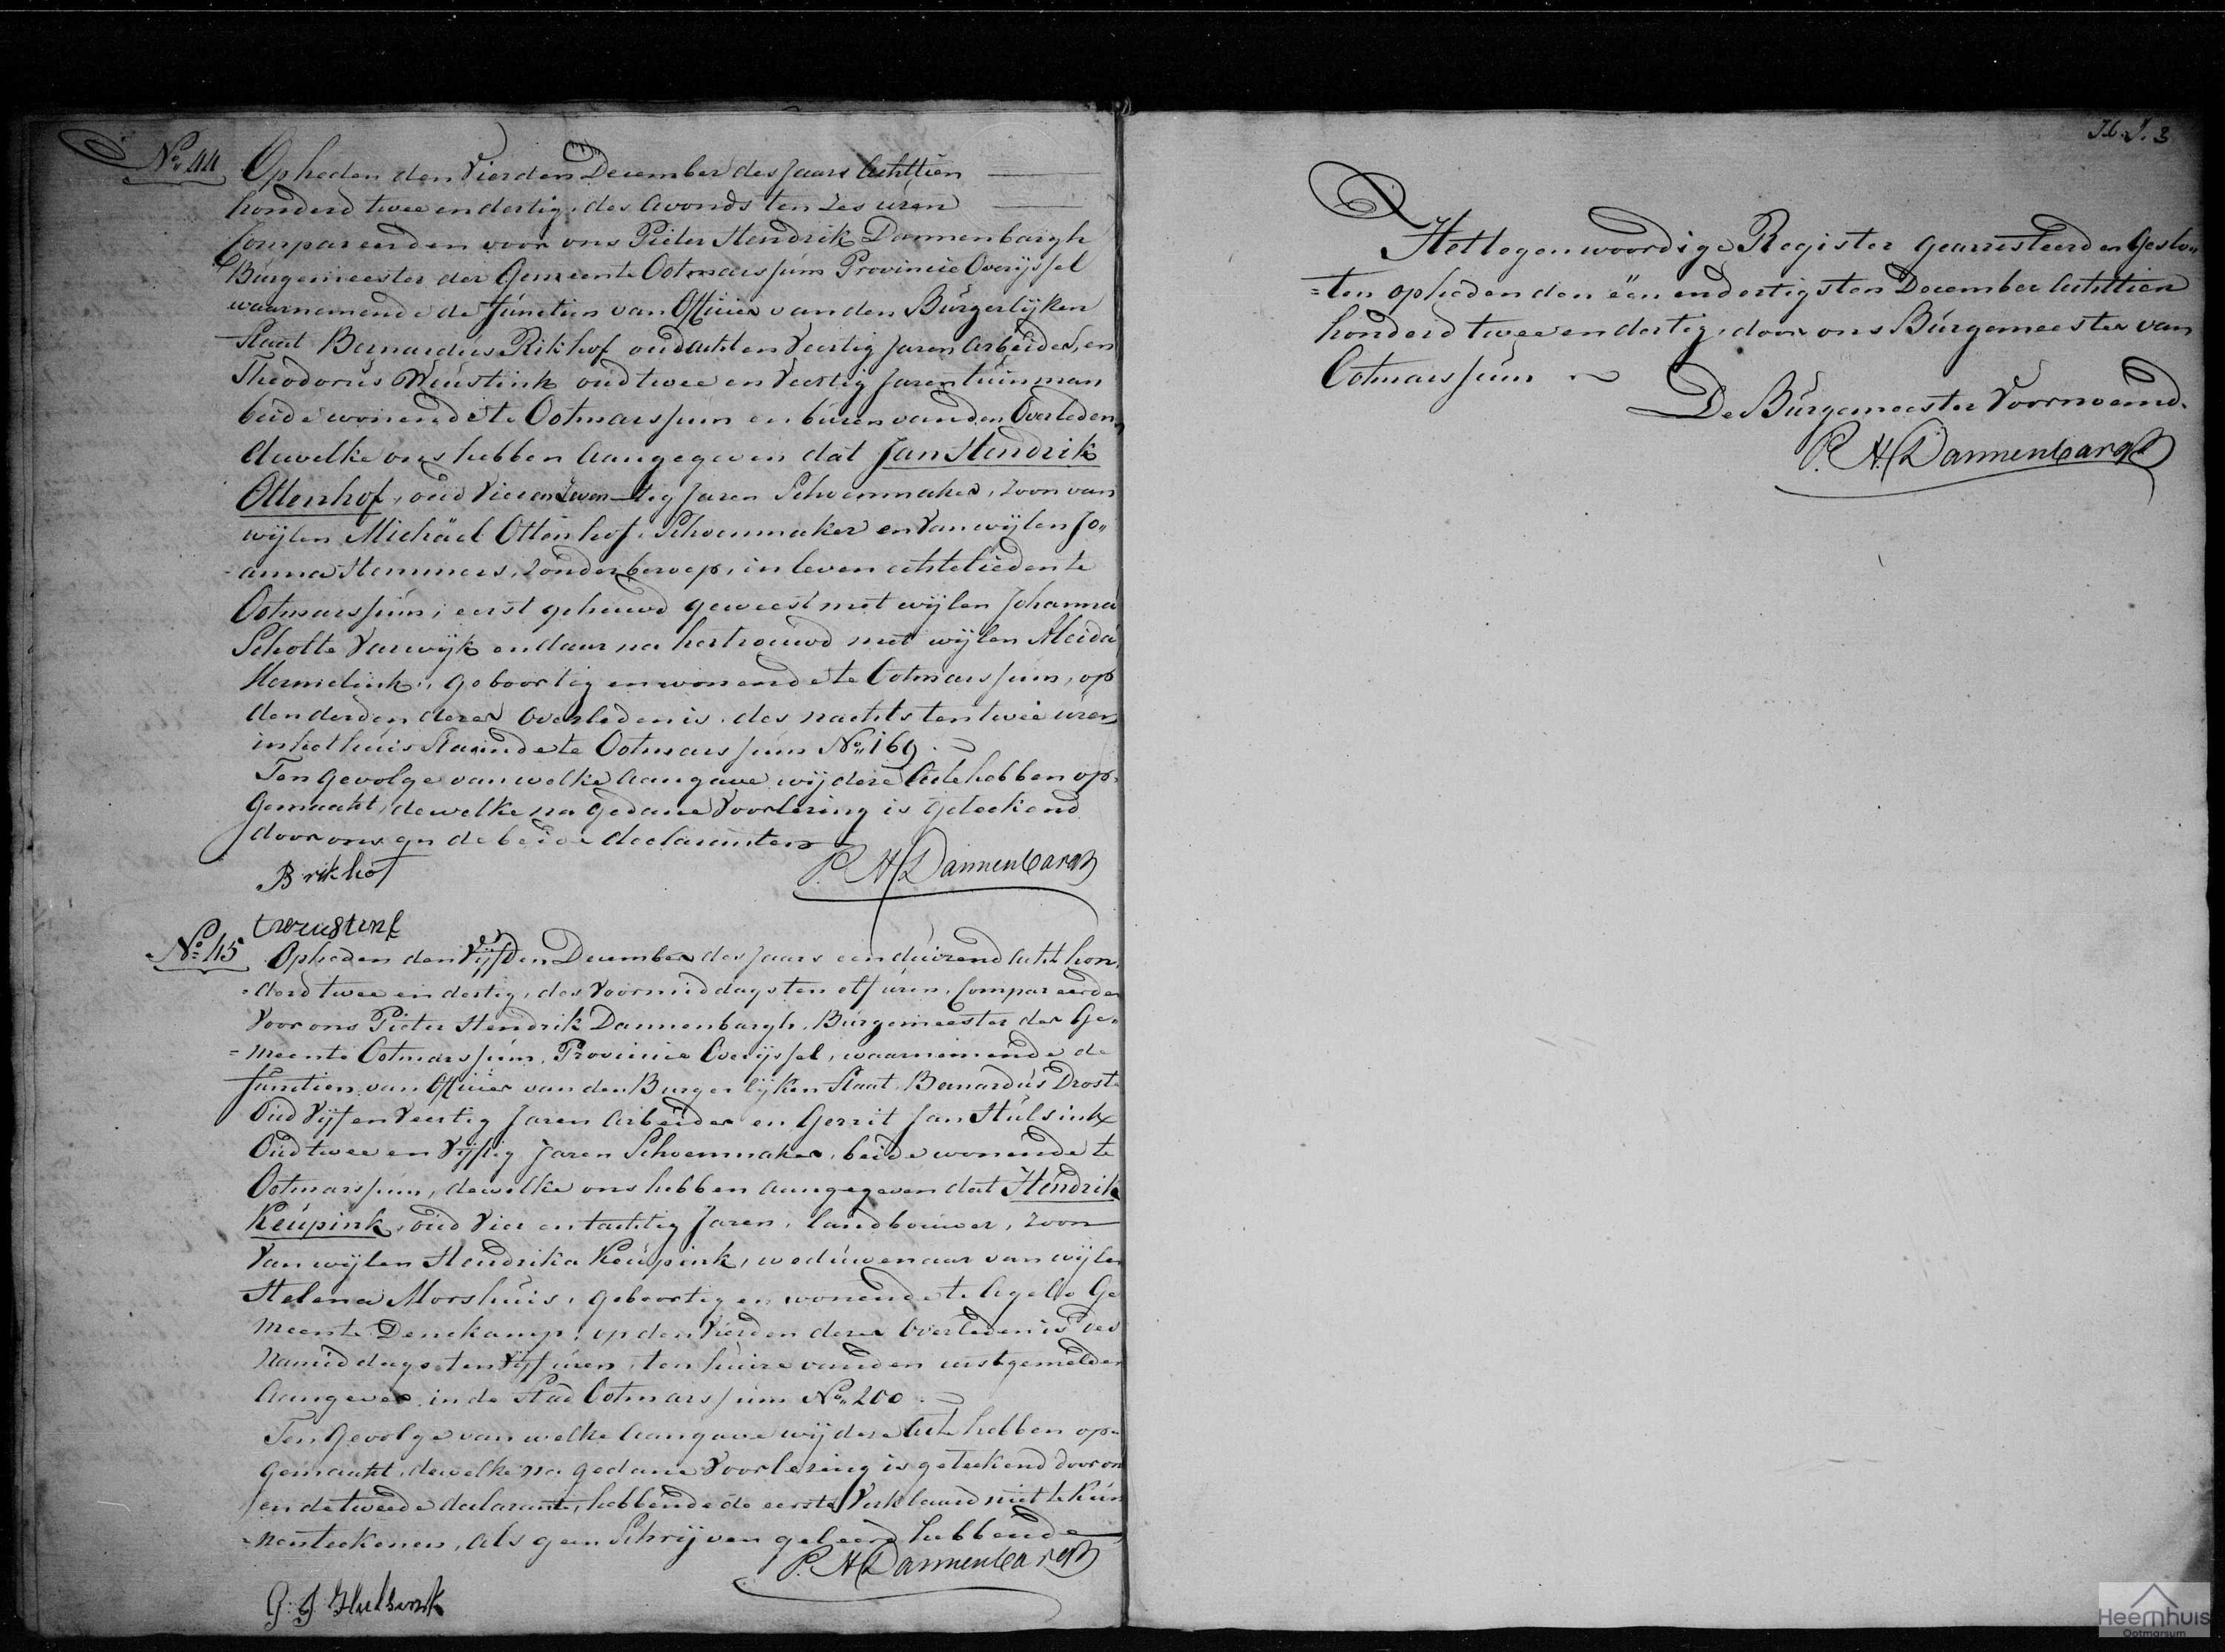 No. 44 Op heden den Vierden December des Jaars Achttien
honderd twee en dertig, des Avonds ten Zes uren
Compareerden voor ons Pieter Hendrik Dannenbargh
Burgemeester der Gemeente Ootmarssum Provincie Overijssel
waarnemende de functien van Officier van den Burgerlyken
Staat Bernardus Rikhof oud acht en Veertig Jaren Arbeider, en
Theodorus Weustink oud twee en Veertig Jaren tuinman
beide wonende te Ootmarssum en buren van den Overleden,
dewelke ons hebben Aangegeven dat Jan Hendrik
Ottenhof, oud Vier en Zeventig Jaren Schoenmaker, Zoon van
wijlen Michäel Ottenhof, Schoenmaker en Van wijlen Jo„
anna Hemmers, Zonder beroep, in leven echtelieden te
Ootmarssum, eerst gehuwd geweest met wijlen Johanna
Scholte Varwijk en daar na hertrouwd met wijlen Aleida
Hermelink, geboortig en wonende te Ootmarssum, op
den derden dezer Overleden is, des nachts ten twee uren
in het huis Staande te Ootmarssum No. 169.
Ten Gevolge van welke Aangave wij deze Acte hebben op„
Gemaakt, dewelke na Gedane Voorlezing is Geteekend
door ons en de beide declaranten
B rikhof P. H. Dannenbargh
t weustink
No. 45 Op heden den Vijfden December des Jaars een duizend Acht hon„
=derd twee en dertig, des Voormiddags ten elf uren, Compareerden
Voor ons Pieter Hendrik Dannenbargh, Burgemeester der Ge„
=meente Ootmarssum, Provincie Overijssel, waarnemende de
functien van Officier van den Burgerlyken Staat, Bernardus Droste
Oud Vijf en Veertig Jaren Arbeider en Gerrit Jan Hulsink
Oud twee en Vijftig Jaren Schoenmaker, beide wonende te
Ootmarssum, dewelke ons hebben aangegeven dat Hendrik
Keupink, oud Vier en tachtig Jaren, landbouwer, Zoon
Van wijlen Hendrika Keupink, weduwenaar van wijlen
Helena Morshuis, Geboortig en wonende te Agelo Ge
meente Denekamp, op den Vierden dezer Overleden is des
Namiddags ten Vijf uren, ten huize van den eerstgemelden
Aangever in de Stad Ootmarssum No. 200.
Ten Gevolge van welke Aangave wij deze Acte hebben op„
Gemaakt, dewelke na gedane Voorlezing is geteekend door ons
en de tweede declarant, hebbende de eerste Verklaard niet te kun
=nen teekenen, als geen Schrijven geleerd hebbende
P. H. Dannenbargh
G: J Hulsink
Het tegenwoordige Register gearresteerd en Geslo„
=ten op heden den een en dertigsten December Achttien
honderd twee en dertig, door ons Burgemeester van
Ootmarssum
De Burgemeester Voornoemd.
P. H. Dannenbargh
Heemhuis
Ootmarsum